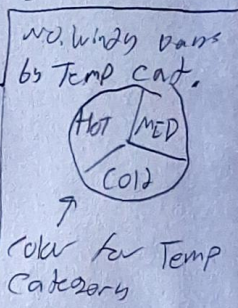 No. Windy Days
by Temp Cat.
HOT
MED
Cold
Color for Temp
Category